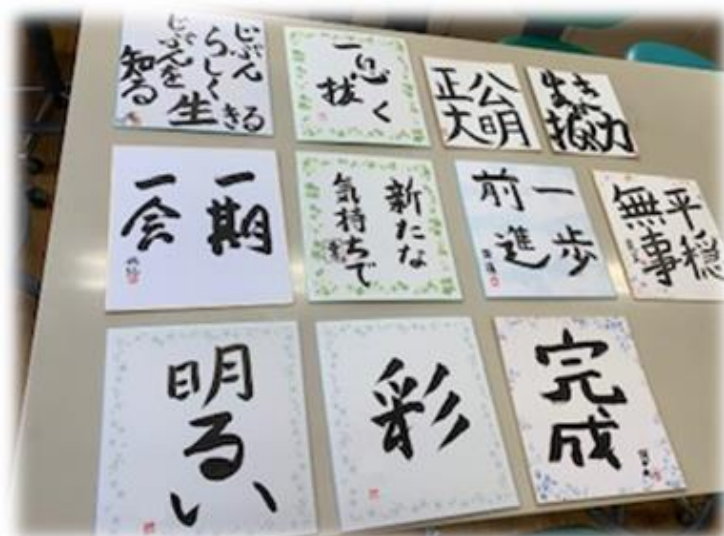 じぶん
らしく
生きる
じぶんを
知る
一息
抜く
公明
正大
生き
力
一期
一会
新たな
気持ちで
一歩
前進
平穏
無事
明るい
彩
完成